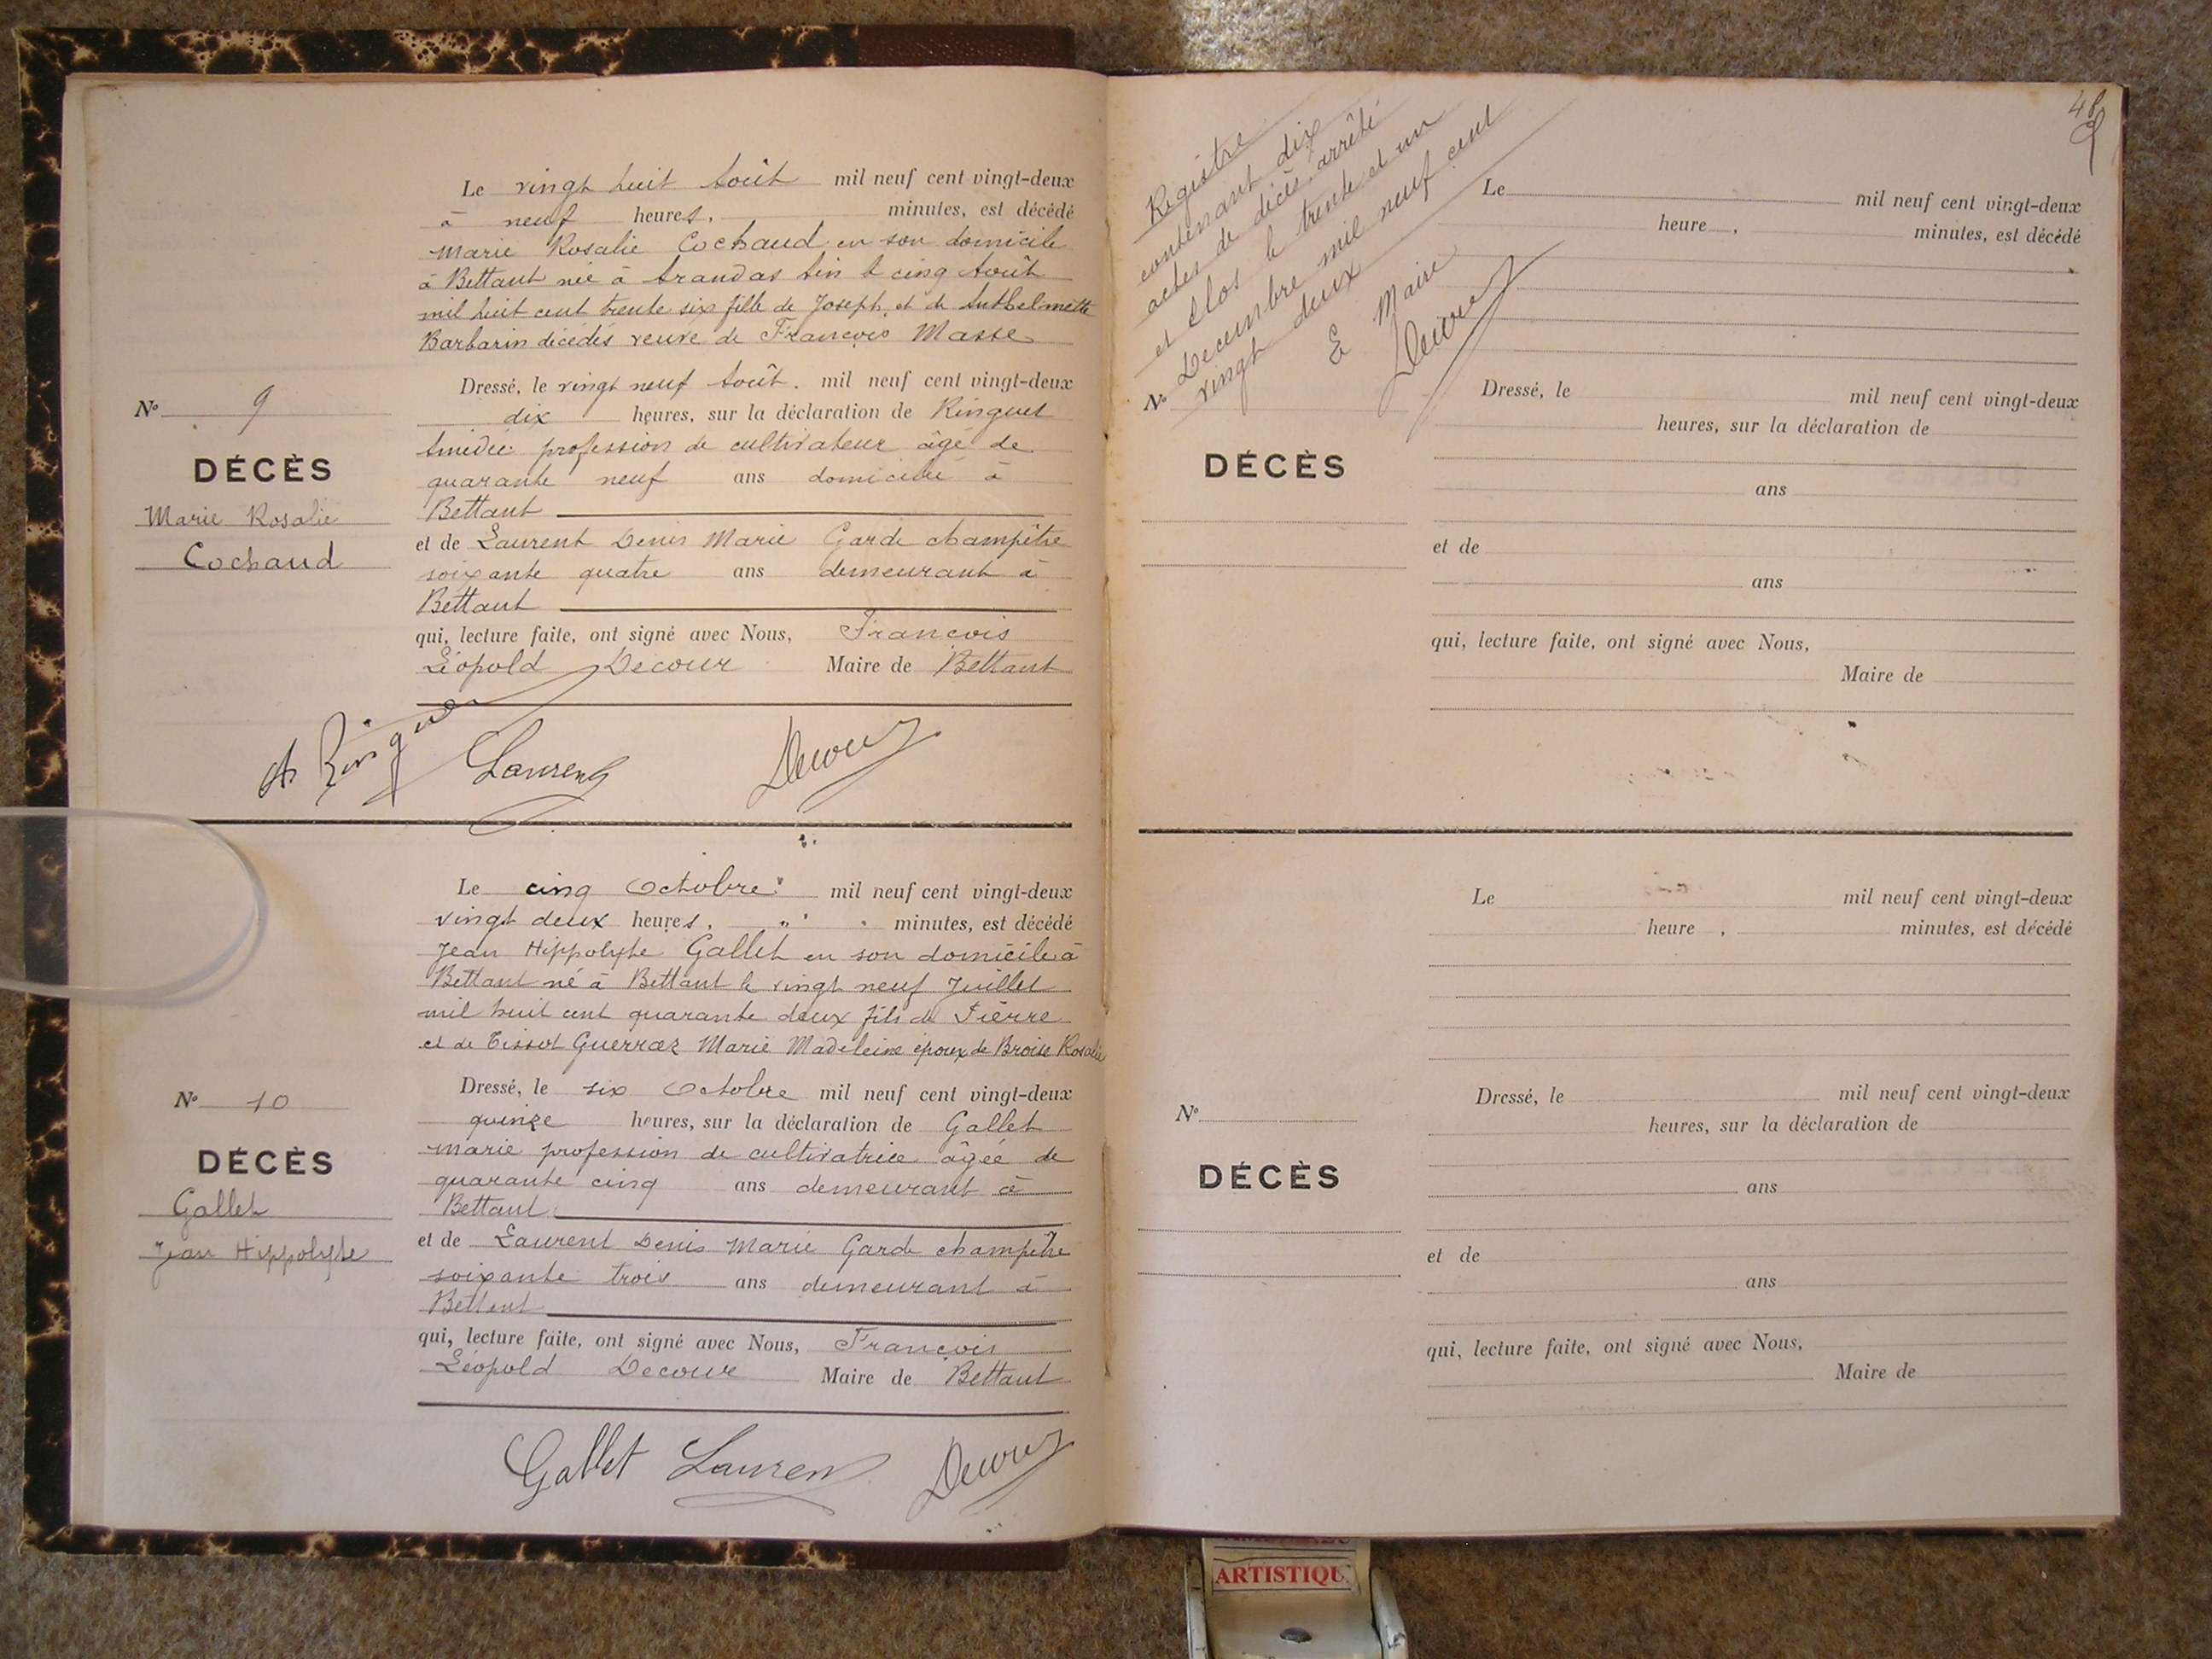 Le vingt huit Août mil neuf cent vingt-deux
à neuf heures, minutes, est décédé
Marie Rosalie Cochaud en son domicile
à Bettant née à Arandas Ain le cinq Août
mil huit cent trente six fille de Joseph et de Anthelmette
Barbarin décédés veuve de François Masse
Dressé, le vingt neuf Août. mil neuf cent vingt-deux
dix heures, sur la déclaration de Ringuet
Amédée profession de cultivateur âgé de
quarante neuf ans domicilié à
Bettant
et de Laurent Denis Marie Garde champêtre
soixante quatre ans demeurant à
Bettant
qui, lecture faite, ont signé avec Nous, François
Léopold Decour Maire de Bettant
N° 9
DÉCÈS
Marie Rosalie
Cochaud
A Ringuet Laurent Decour
Le cinq Octobre mil neuf cent vingt-deux
vingt deux heures, " minutes, est décédé
Jean Hippolyte Gallet en son domicile à
Bettant né à Bettant le vingt neuf Juillet
mil huit cent quarante deux fils de Pierre
et de Tissot Guerraz Marie Madeleine époux de Broise Rosalie
Dressé, le six Octobre mil neuf cent vingt-deux
quinze heures, sur la déclaration de Gallet
Marie profession de cultivatrice âgée de
quarante cinq ans demeurant à
Bettant
et de Laurent Denis Marie Garde champêtre
soixante trois ans demeurant à
Bettant
qui, lecture faite, ont signé avec Nous, François
Léopold Decour Maire de Bettant
N° 10
DÉCÈS
Gallet
Jean Hippolyte
Gallet Laurent Decour
Registre
contenant dix
actes de décès arrêté
et clos le trente et un
Decembre mil neuf cent
vingt deux
Le Maire
Decour
Le mil neuf cent vingt-deux
heure , minutes, est décédé
Dressé, le mil neuf cent vingt-deux
heures, sur la déclaration de
ans
et de
ans
qui, lecture faite, ont signé avec Nous,
Maire de
N°
DÉCÈS
Le mil neuf cent vingt-deux
heure , minutes, est décédé
Dressé, le mil neuf cent vingt-deux
heures, sur la déclaration de
ans
et de
ans
qui, lecture faite, ont signé avec Nous,
Maire de
N°
DÉCÈS
ARTISTIQU